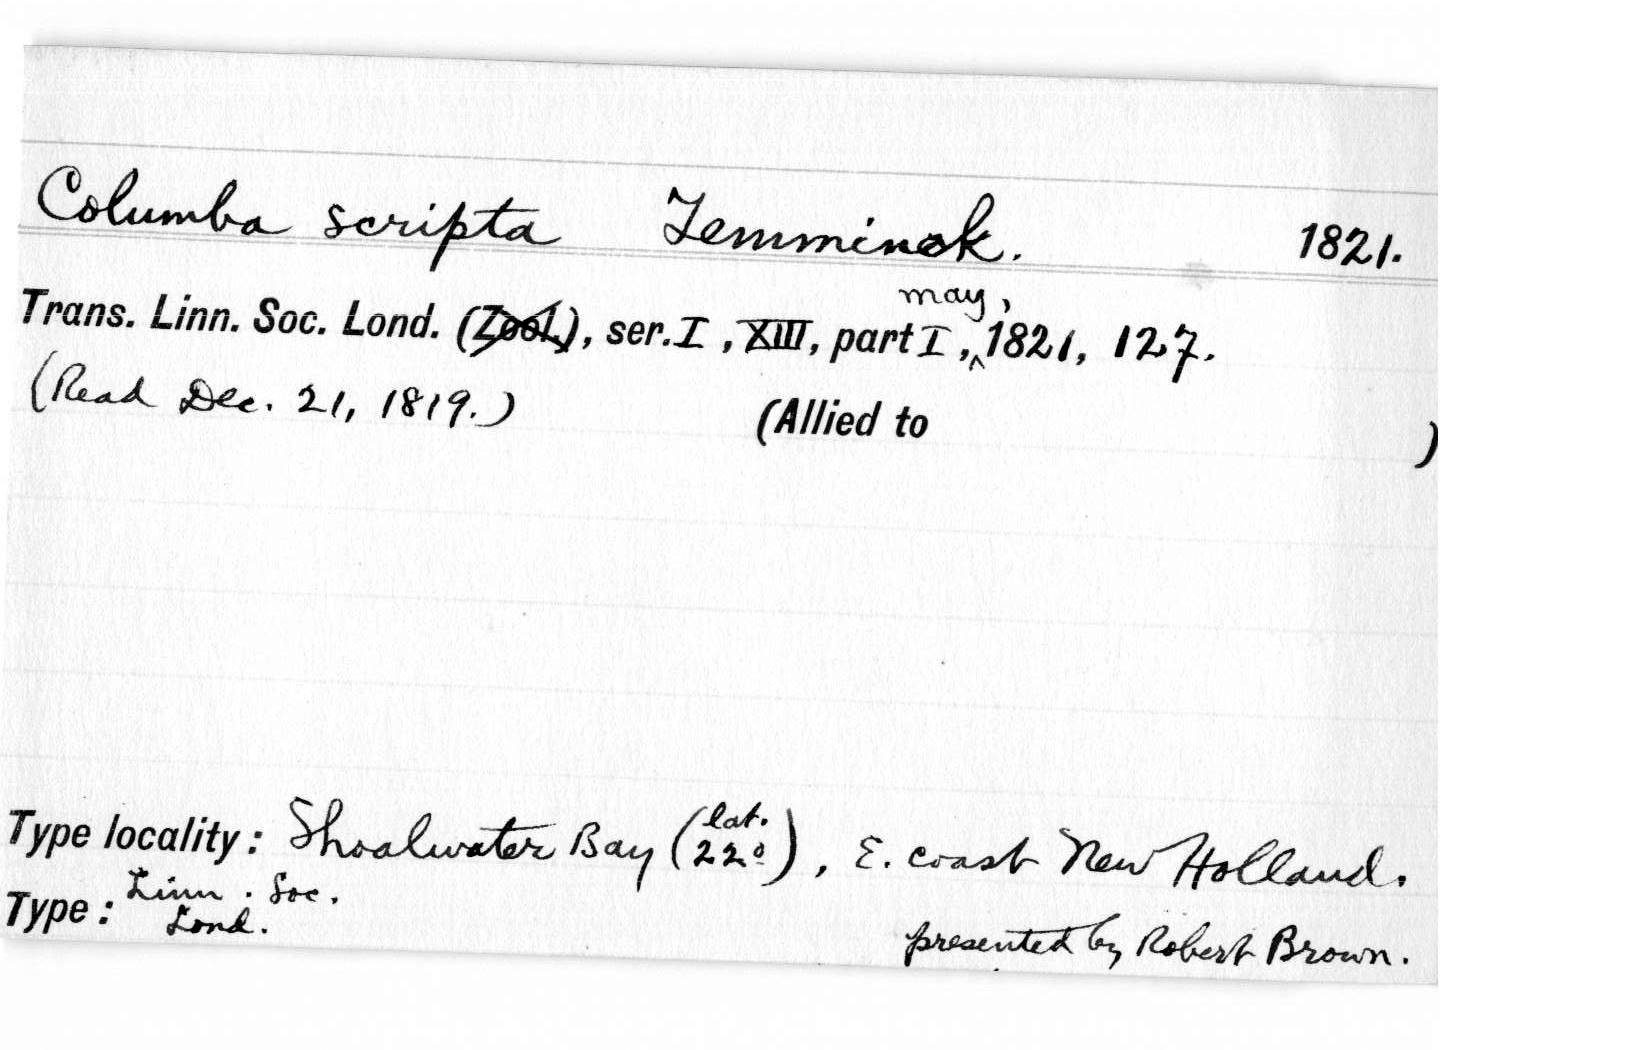 Columba scripta Temminck. 1821.
Trans. Linn. Soc. Lond. (Zool.), ser. I, XIII, part I, may, 1821, 127.
(Read Dec. 21, 1819.) (Allied to )
Type locality: Shoalwater Bay (lat. 22°), E. coast New Holland.
Type: Linn. Soc. Lond.
presented by Robert Brown.